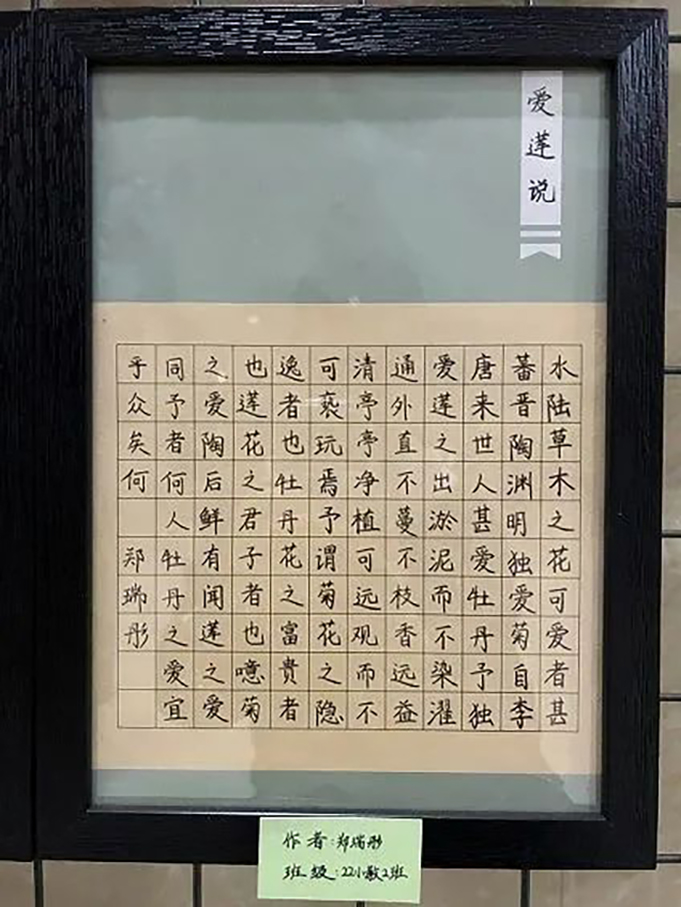 爱莲说
水陆草木之花可爱者甚
蕃晋陶渊明独爱菊自李
唐来世人甚爱牡丹予独
爱莲之出淤泥而不染濯
通外直不蔓不枝香远益
清亭亭净植可远观而不
可亵玩焉予谓菊花之隐
逸者也牡丹花之富贵者
也莲花之君子者也噫菊
之爱陶后鲜有闻莲之爱
同予者何人牡丹之爱宜
乎众矣何 郑瑞彤
作者:郑瑞彤
班级:22小教2班